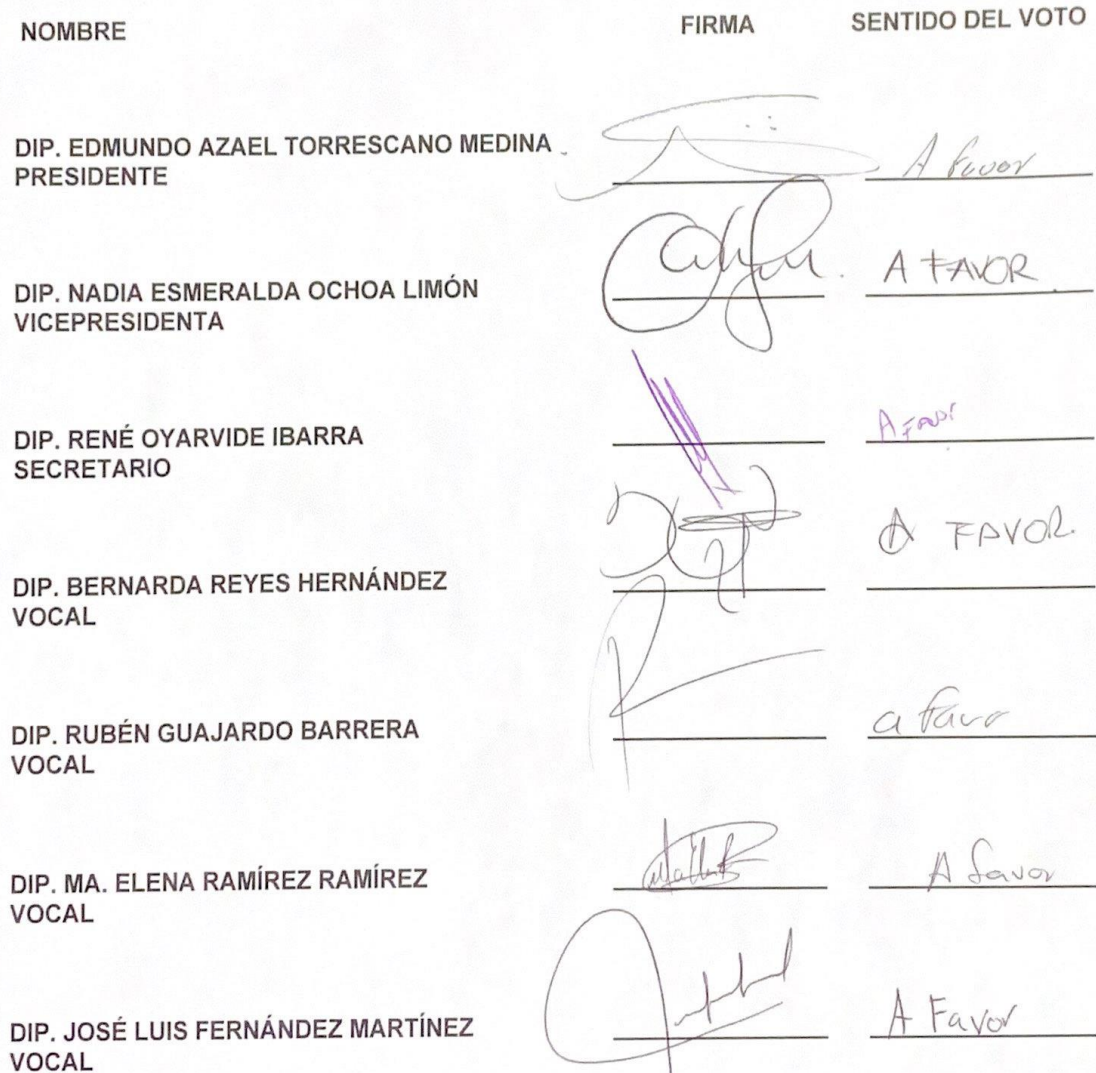 NOMBRE FIRMA SENTIDO DEL VOTO
DIP. EDMUNDO AZAEL TORRESCANO MEDINA
PRESIDENTE
A favor
DIP. NADIA ESMERALDA OCHOA LIMÓN
VICEPRESIDENTA
A FAVOR
DIP. RENÉ OYARVIDE IBARRA
SECRETARIO
A FAVOR
DIP. BERNARDA REYES HERNÁNDEZ
VOCAL
A FAVOR
DIP. RUBÉN GUAJARDO BARRERA
VOCAL
a favor
DIP. MA. ELENA RAMÍREZ RAMÍREZ
VOCAL
A favor
DIP. JOSÉ LUIS FERNÁNDEZ MARTÍNEZ
VOCAL
A Favor